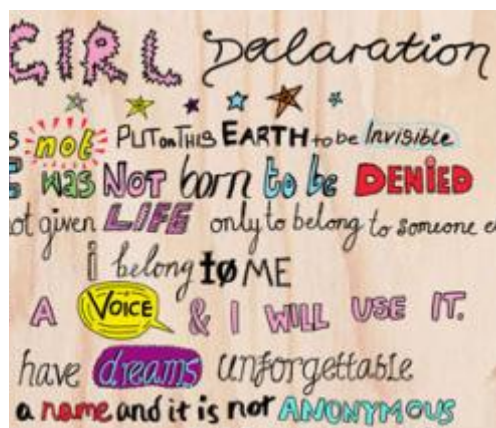 GIRL Declaration
s not PUT on THIS EARTH to be Invisible
I was NOT born to be DENIED
ot given LIFE only to belong to someone e
i belong to ME
A VOICE & I WILL USE IT.
have dreams unforgettable
a name and it is not ANONYMOUS